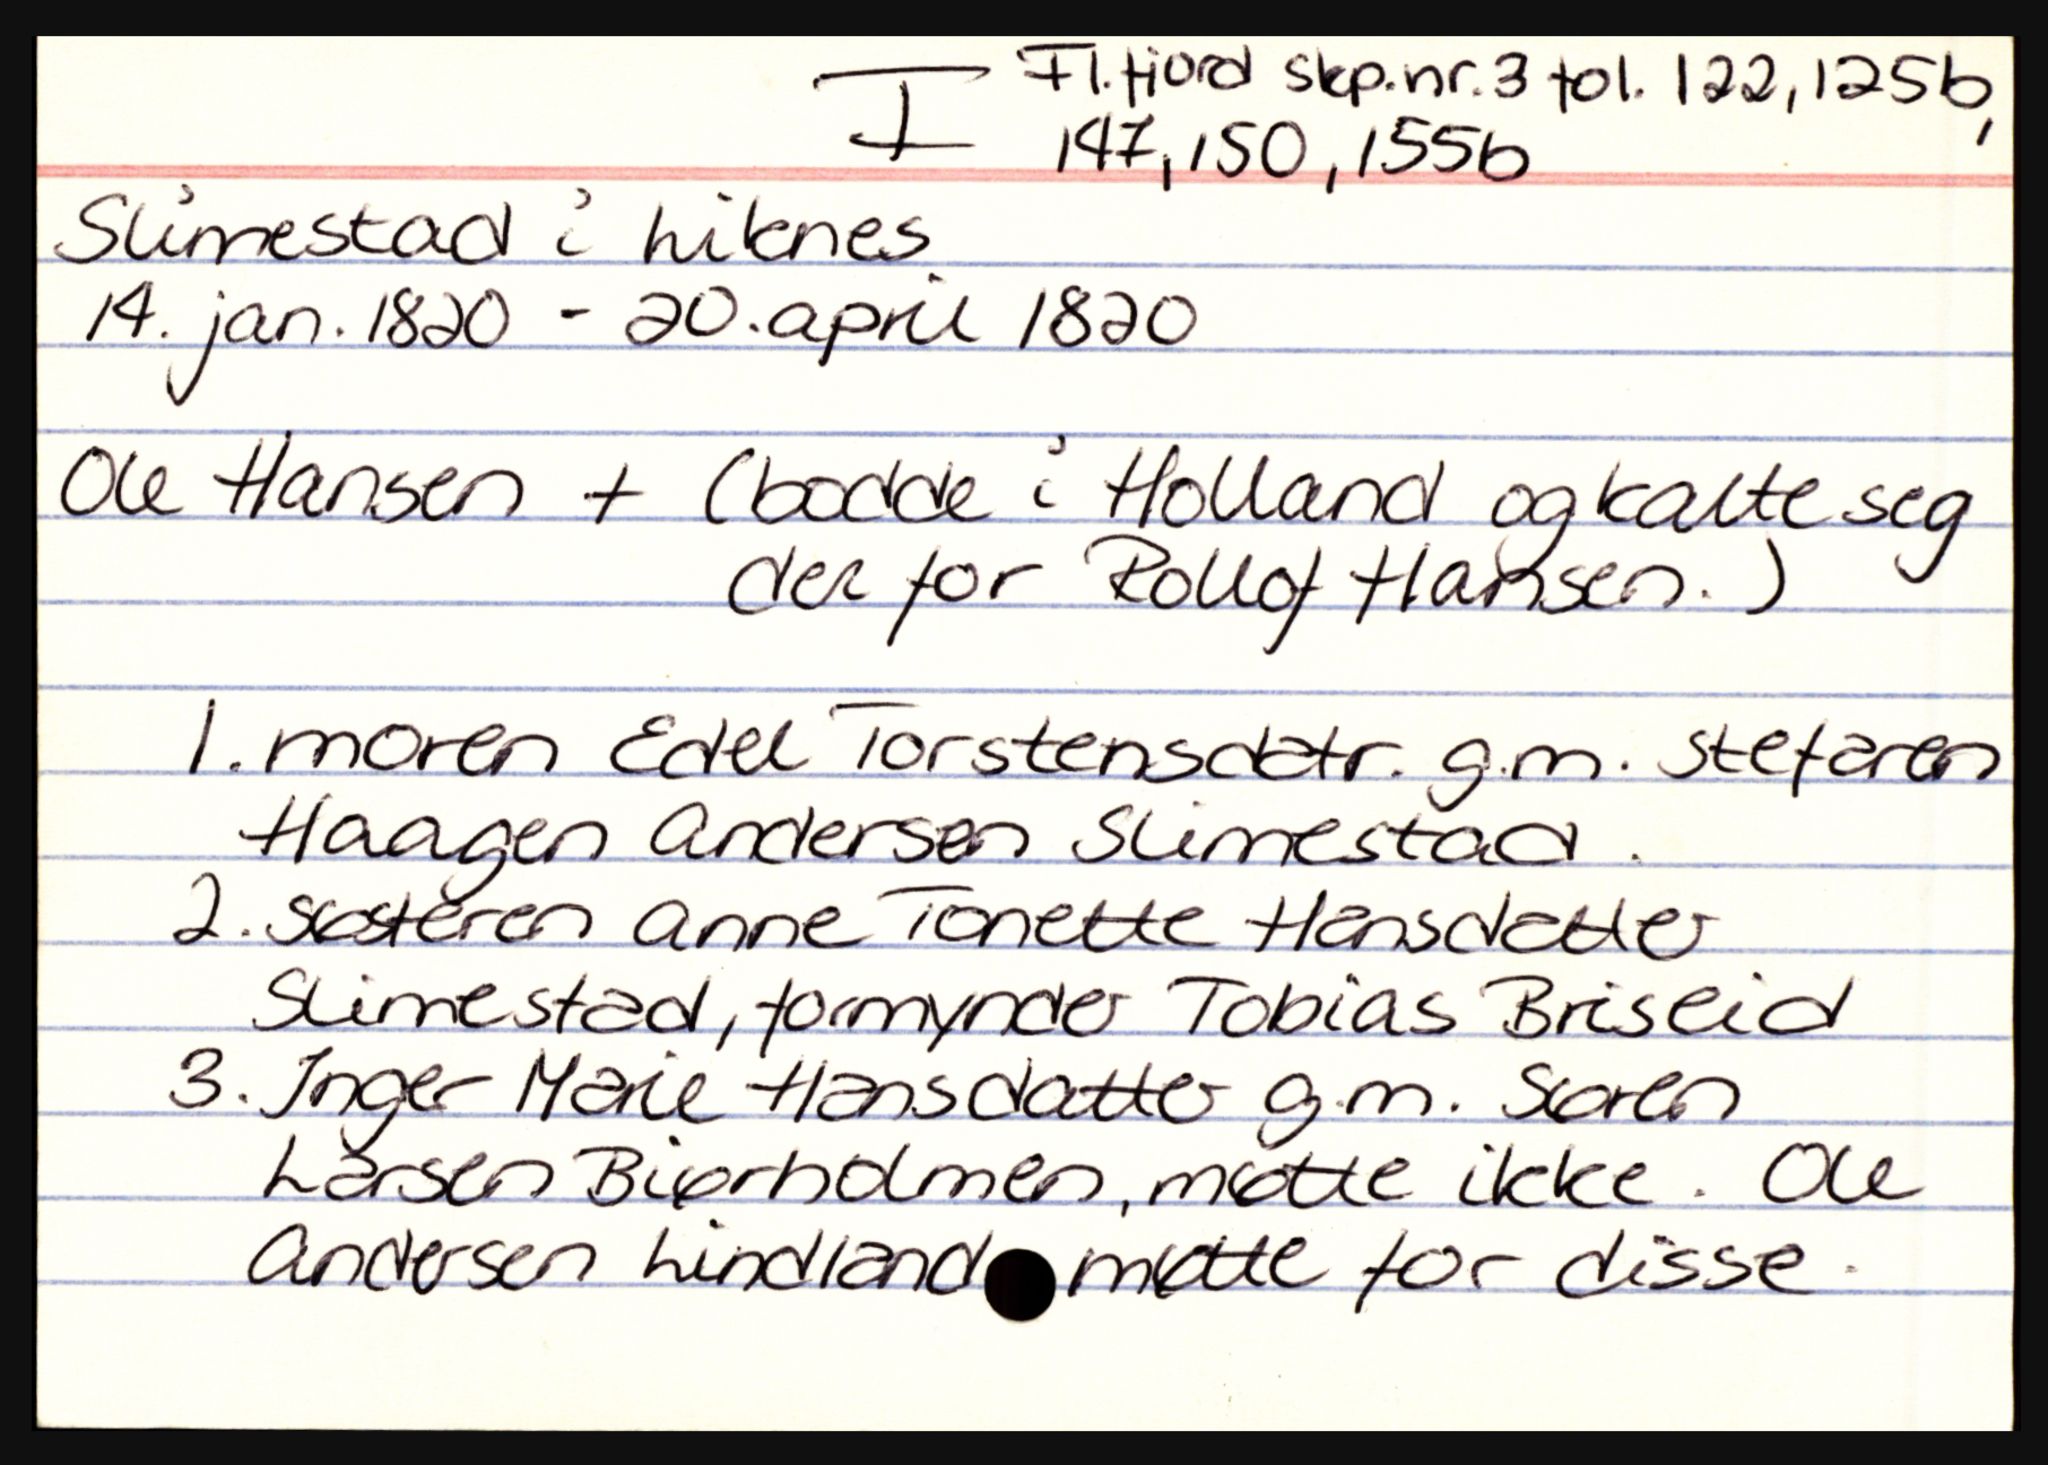 I Fl.fjord skp.nr.3 fol. 122, 125b,
147, 150, 155b
Slimestad i Liknes
14. jan. 1820 - 20. april 1820
Ole Hansen + (bodde i Holland og kalte seg
der for Rollof Hansen.)
1. moren Edel Torstensdatr. g.m. stefaren
Haagen Andersen Slimestad.
2. søsteren Anne Tonette Hansdatter
Slimestad, formynder Tobias Briseid
3. Inger Marie Hansdatter g.m. Søren
Larsen Biørholmen, møtte ikke. Ole
Andersen Lindland møtte for disse.